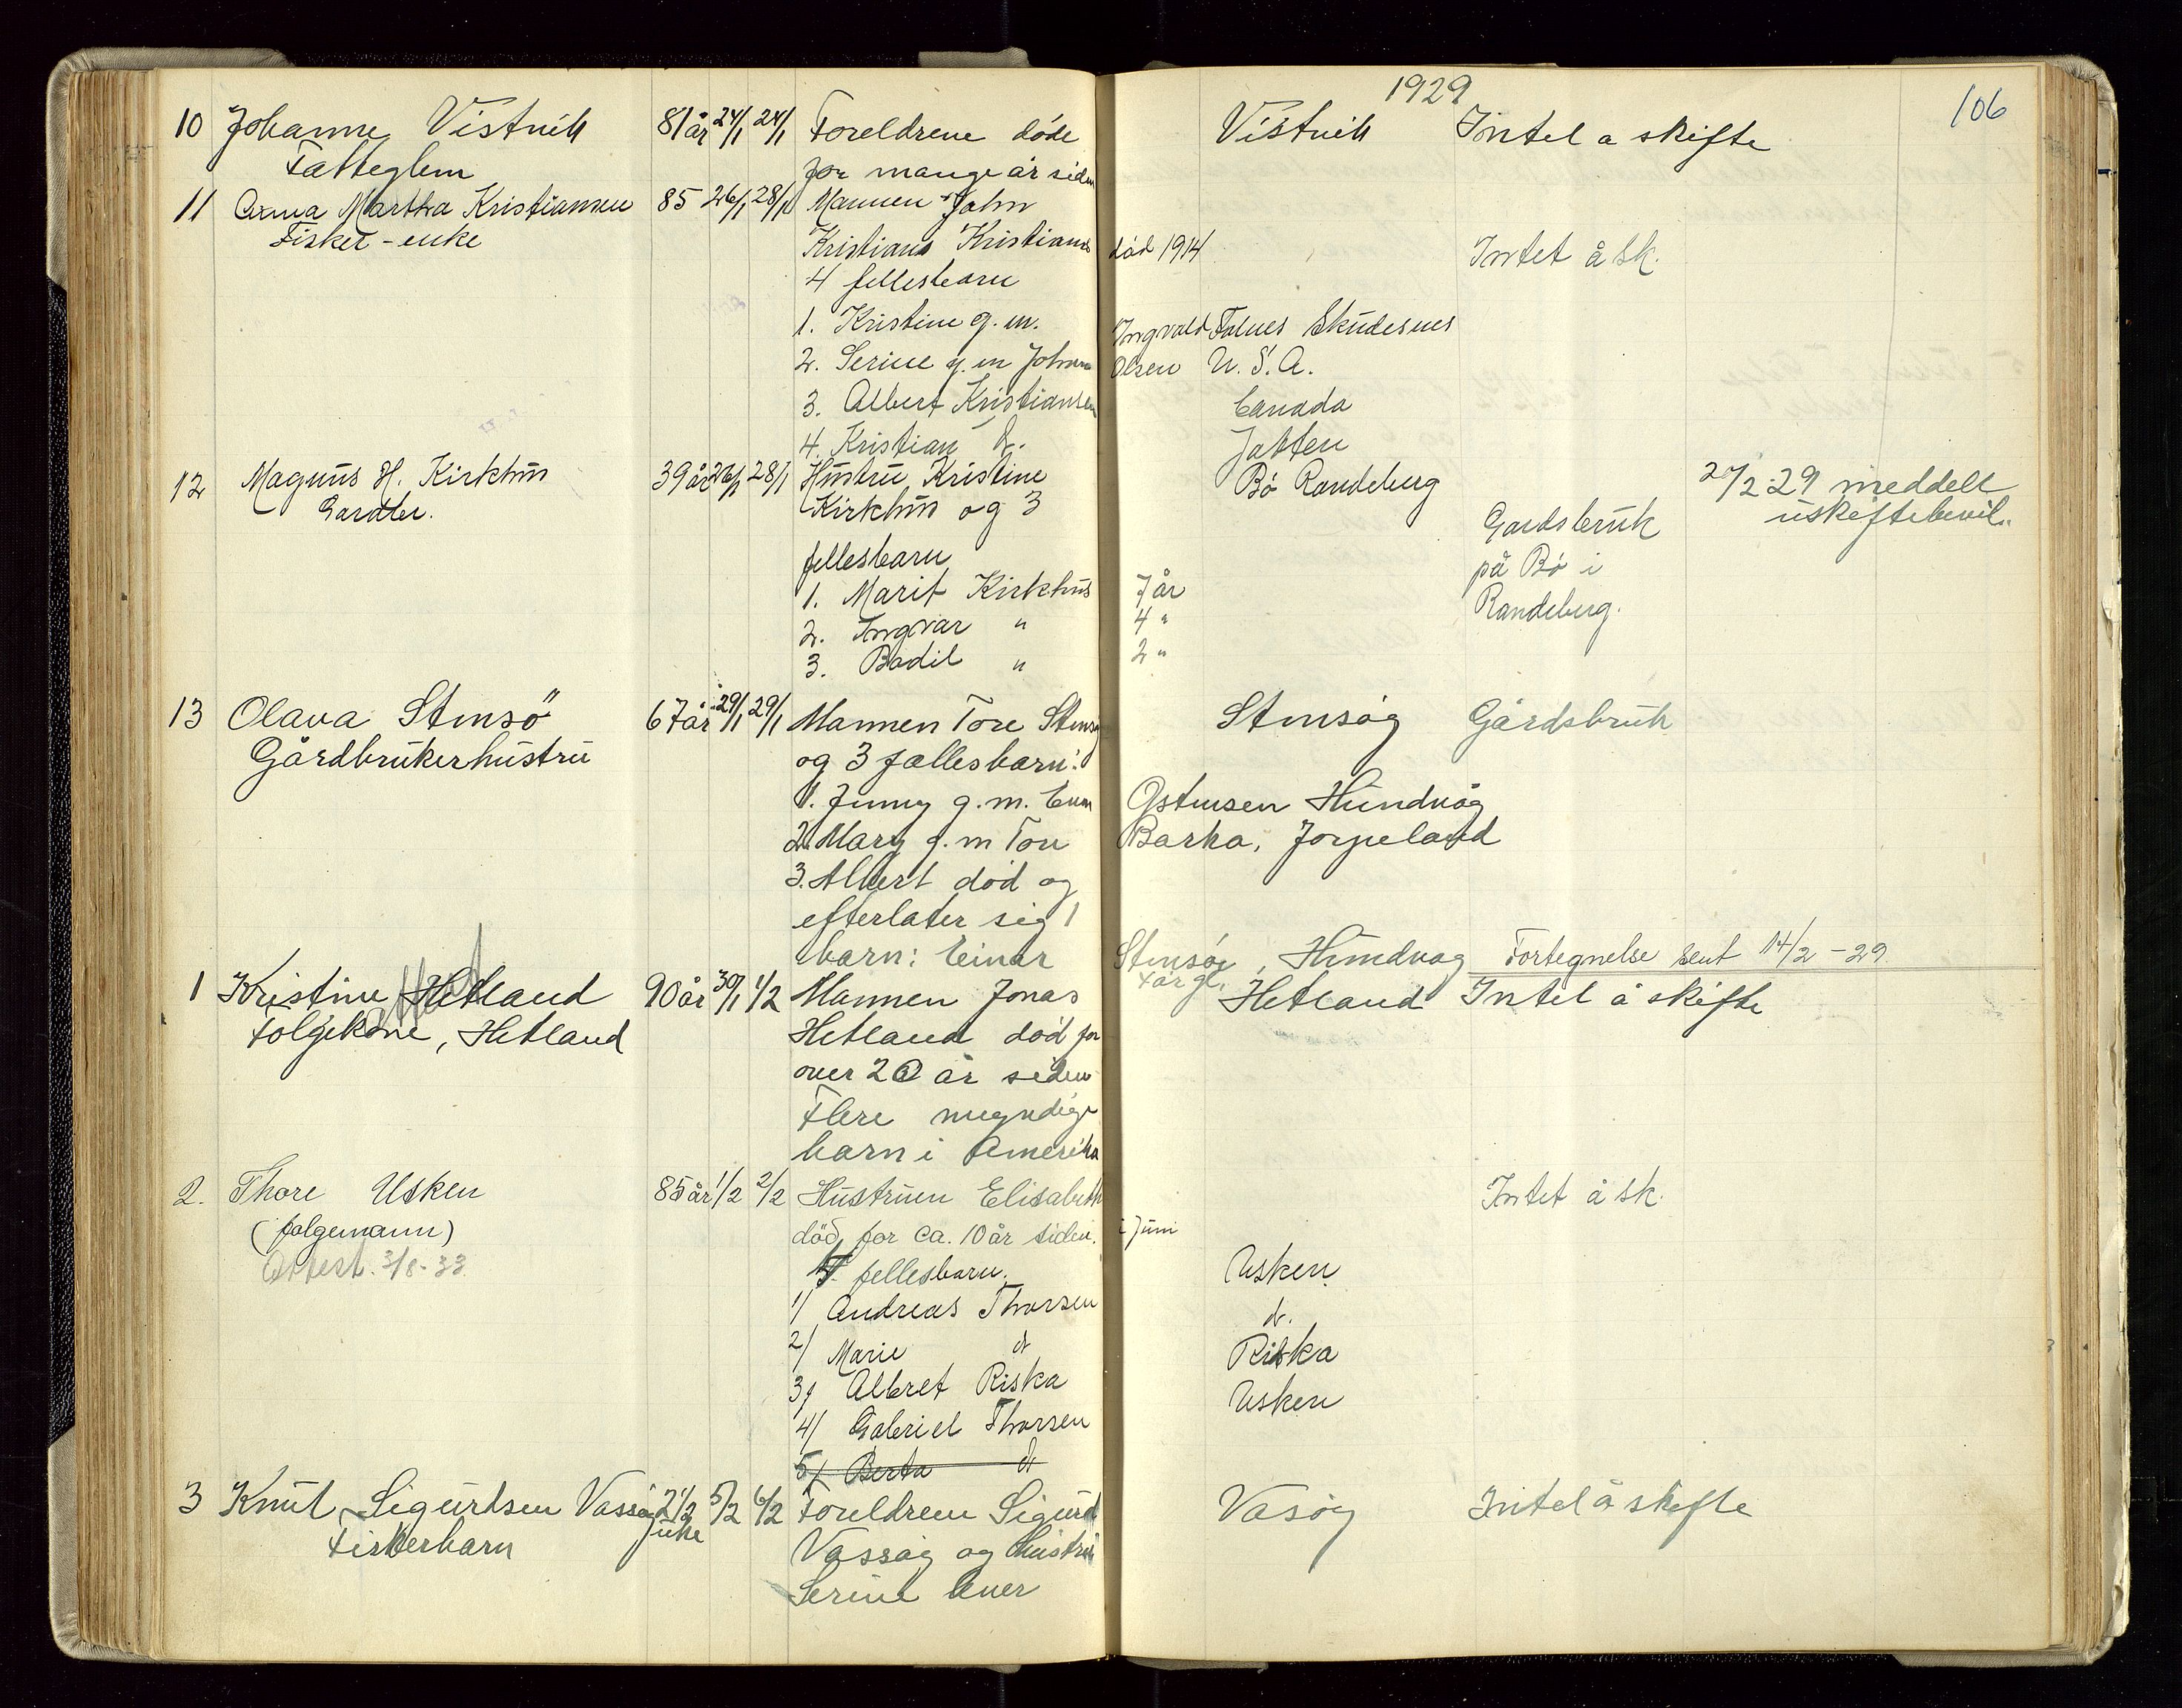 1929
106
10 Johanne Vistnih 81 år 24/1 24/1 Foreldrene døde Vistnih Intet a skifte
Fattiglem for mange år siden
11 Anna Martha Kristiansen 85 26/1 28/1 Mannen John
Fisker-enke Kristians Kristians død 1914 Intet å sk.
4 fellesbarn
1. Kristine g.m. Ingvald Falnes Skudesnes
2. Serine g.m Johan Olsen U.S.A.
3. Albert Kristiansen Canada
4. Kristian d. Jåtten
12 Magnus H. Kirkhus 39 år 26/1 28/1 Hustru Kristine Bø Randeberg 27/2-29 meddelt
Gardbr. Kirkhus og 3 Gardsbruk uskiftebevil.
fellesbarn på Bø i
1. Marit Kirkhus 7 år Randeberg.
2. Ingvar " 4 "
3. Bodil " 2 "
13 Olava Stensø 67 år 29/1 29/1 Mannen Tore Stensø Stensøy Gårdsbruk
Gårdbrukerhustru og 3 fællesbarn:
1. Jenny g.m. Even Østensen Hundvåg
2. Mary g.m Tore Barka, Jørpeland
3. Albert død og
efterlater sig 1
barn: Einar Stensøy, Hundvag Fortegnelse sent 14/2-29
1 Kristine Hetland 90 år 30/1 1/2 Mannen Jonas Hetland Intet å skifte
Følgekone, Hetland Hetland død for
over 20 år siden
Flere myndige
barn i Amerika
2. Thore Usken 85 år 1/2 2/2 Hustruen Elisabeth Intet å sk.
(følgemann) død for ca. 10 år siden. i Juni
Attest. 3/8-33. fellesbarn. Usken
1/ Andreas Thorsen d.
2/ Marie d Riska
3/ Albret Riska Usken
4/ Gabriel Thorsen
5/ Berta d
3 Knut Sigurdsen Vassøy 2 1/2 5/2 6/2 Foreldrene Sigurd Vasøy Intet å skifte
Fiskerbarn uke Vassøy og hustru
Serine lever